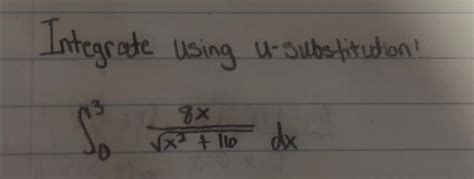 Integrate using u-substitution!
∫₀³ 8x/√(x² + 16) dx